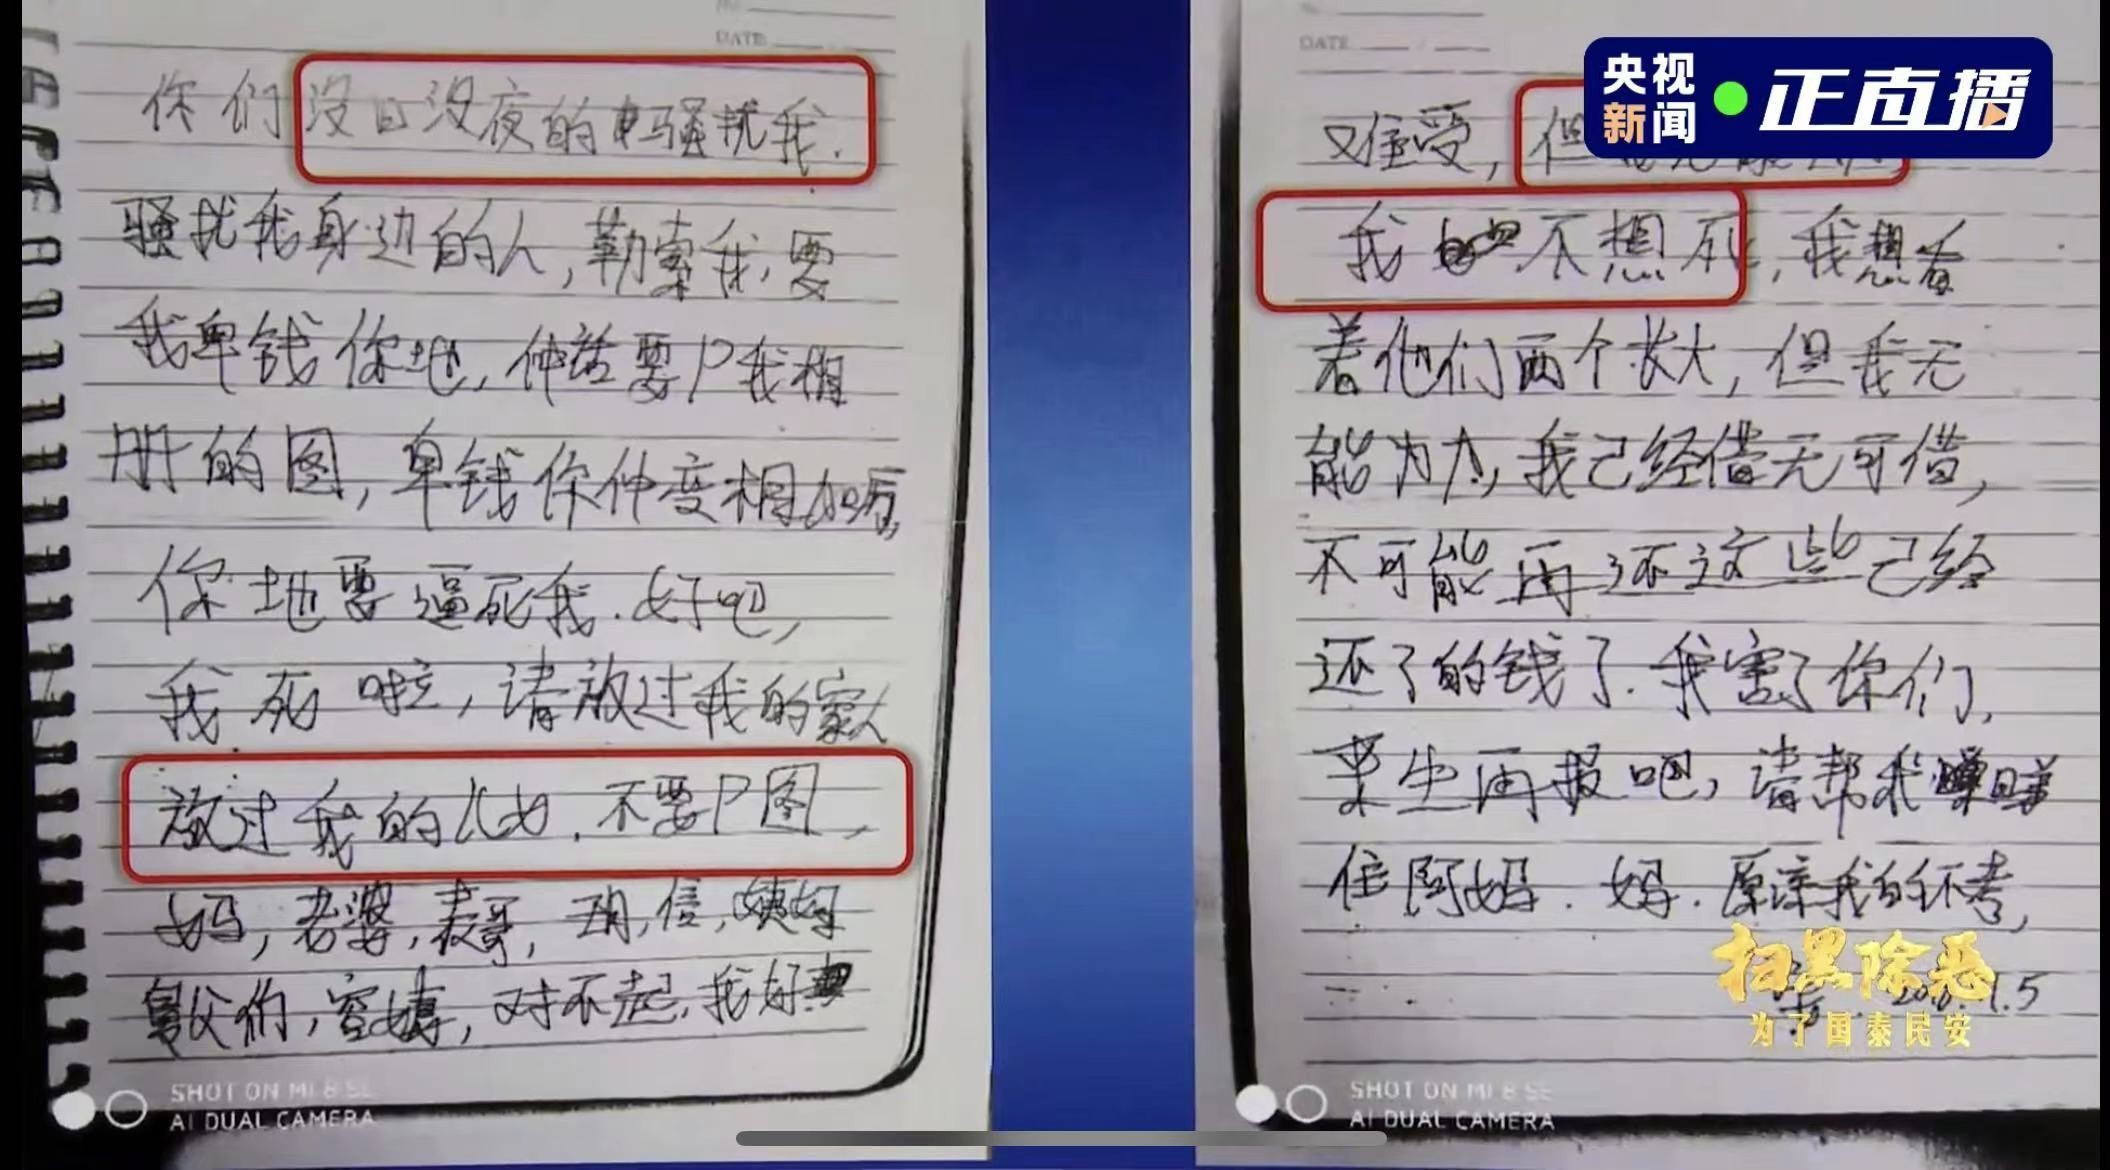 DATE
你们没日没夜的骚扰我.
骚扰我身边的人,勒索我,要
我畀钱你地,仲话要P我相
册的图,畀钱你仲变相加厉,
你地要逼死我.好吧,
我死啦,请放过我的家人
放过我的儿女.不要P图,
妈,老婆,表哥,玥,信,姨妈
舅父们,容姨,对不起,我好
SHOT ON MI 8 SE
AI DUAL CAMERA
DATE
难受,但
我不想死,我想看
着他们两个长大,但我无
能为力,我己经借无可借,
不可能再还这些己经
还了的钱了.我害了你们,
来生再报吧,请帮我
住阿妈.妈.原谅我的不孝,
1.5
SHOT ON MI 8 SE
AI DUAL CAMERA
央视新闻
正直播
扫黑除恶
为了国泰民安